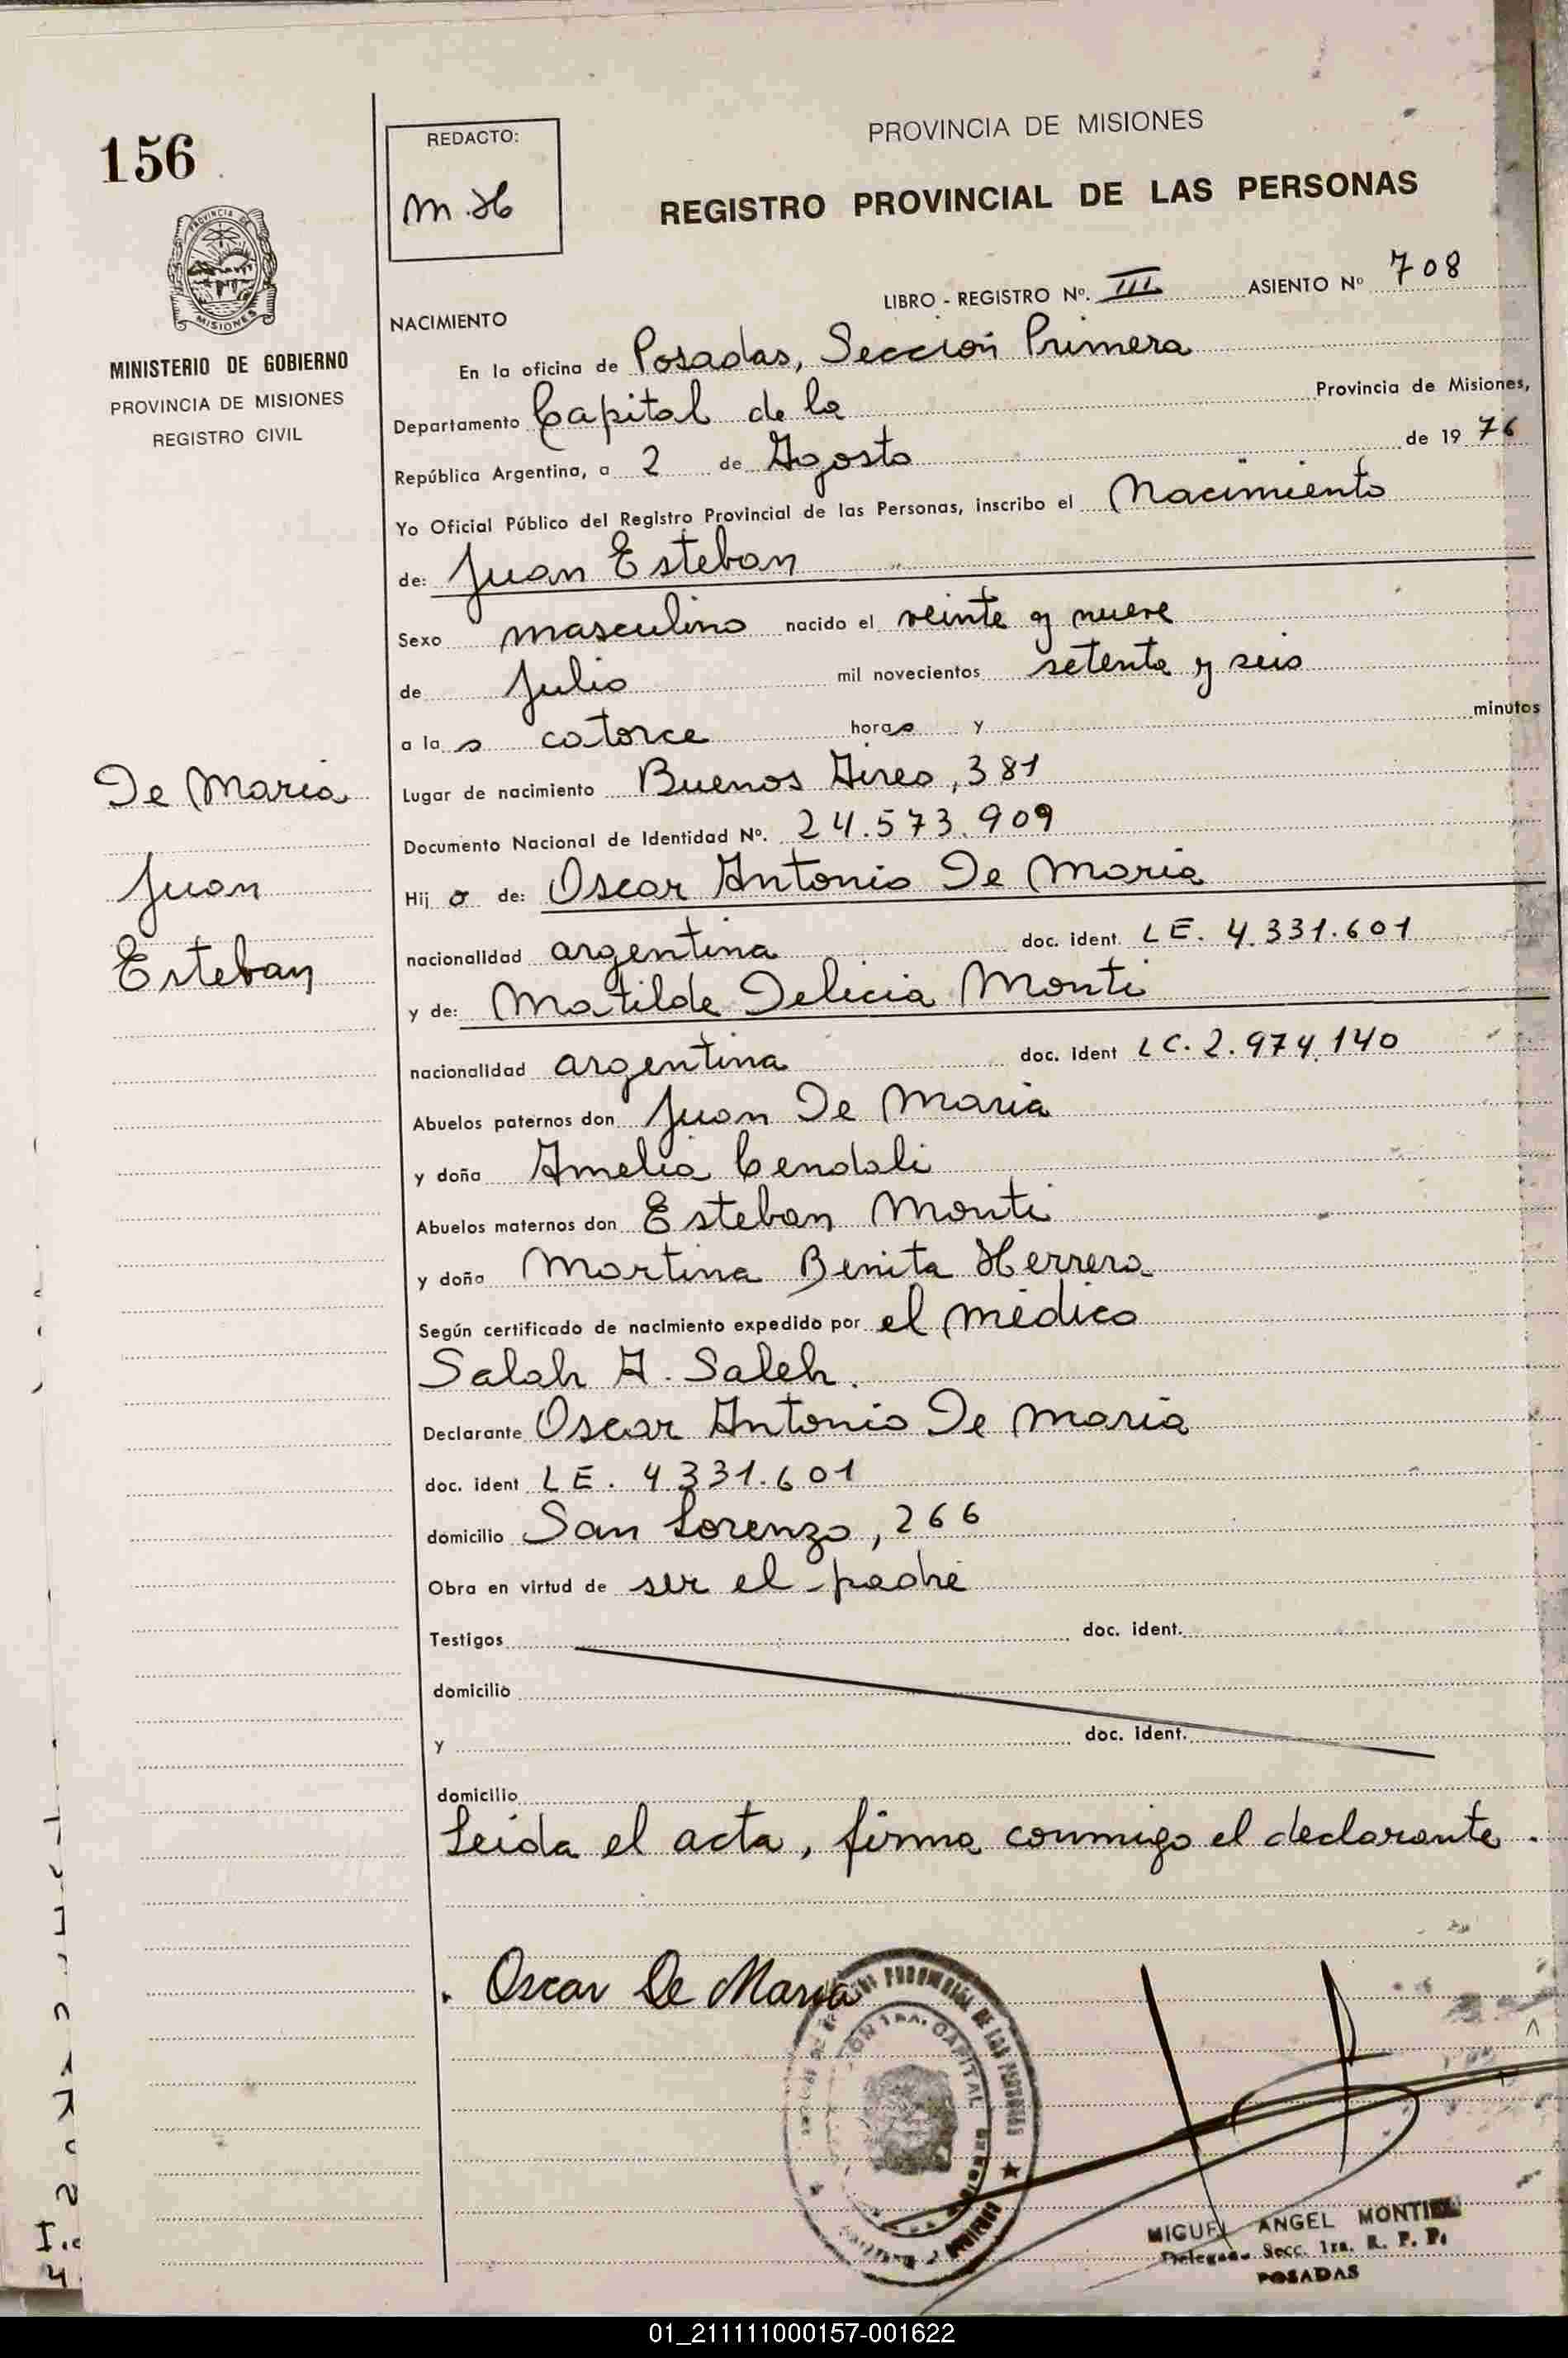 156
PROVINCIA DE MISIONES
MINISTERIO DE GOBIERNO
PROVINCIA DE MISIONES
REGISTRO CIVIL
De Maria
Juan
Esteban
REDACTO:
M.H
PROVINCIA DE MISIONES
REGISTRO PROVINCIAL DE LAS PERSONAS
LIBRO - REGISTRO Nº. III ASIENTO Nº 708
NACIMIENTO
En la oficina de Posadas, Sección Primera
Departamento Capital de la Provincia de Misiones,
República Argentina, a 2 de Agosto de 1976
Yo Oficial Público del Registro Provincial de las Personas, inscribo el Nacimiento
de: Juan Esteban
Sexo masculino nacido el veinte y nueve
de Julio mil novecientos setenta y seis
a las catorce horas y minutos
Lugar de nacimiento Buenos Aires, 381
Documento Nacional de Identidad Nº. 24.573.909
Hijo de: Oscar Antonio De Maria
nacionalidad argentina doc. ident. LE. 4.331.601
y de: Matilde Delicia Monti
nacionalidad argentina doc. ident LC. 2.974.140
Abuelos paternos don Juan De Maria
y doña Amelia Cendali
Abuelos maternos don Esteban Monti
y doña Martina Benita Herrera
Según certificado de nacimiento expedido por el médico
Salah A. Saleh.
Declarante Oscar Antonio De Maria
doc. ident LE. 4.331.601
domicilio San Lorenzo, 266
Obra en virtud de ser el padre
Testigos doc. ident.
domicilio
y doc. ident.
domicilio
Leída el acta, firma conmigo el declarante.
Oscar De Maria
PROVINCIAL DE LAS PERSONAS
1RA. CAPITAL
MIGUEL ANGEL MONTIEL
Delegado Secc. 1ra. R. P. P.
POSADAS
01_211111000157-001622